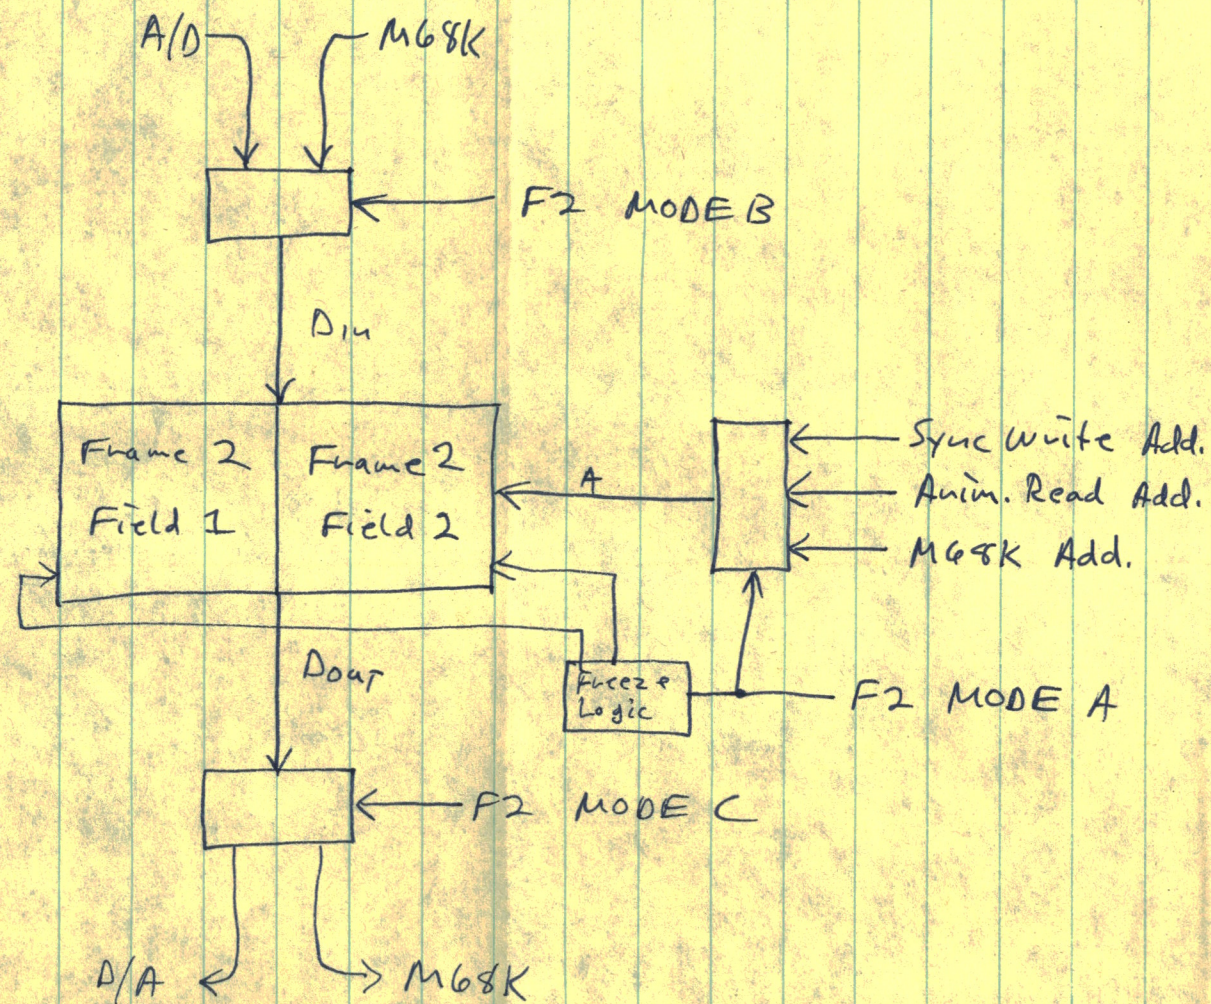 A/D
M68K
F2 MODE B
Din
Frame 2
Field 1
Frame 2
Field 2
A
Sync Write Add.
Anim. Read Add.
M68K Add.
Dout
Freeze
Logic
F2 MODE A
F2 MODE C
D/A
M68K